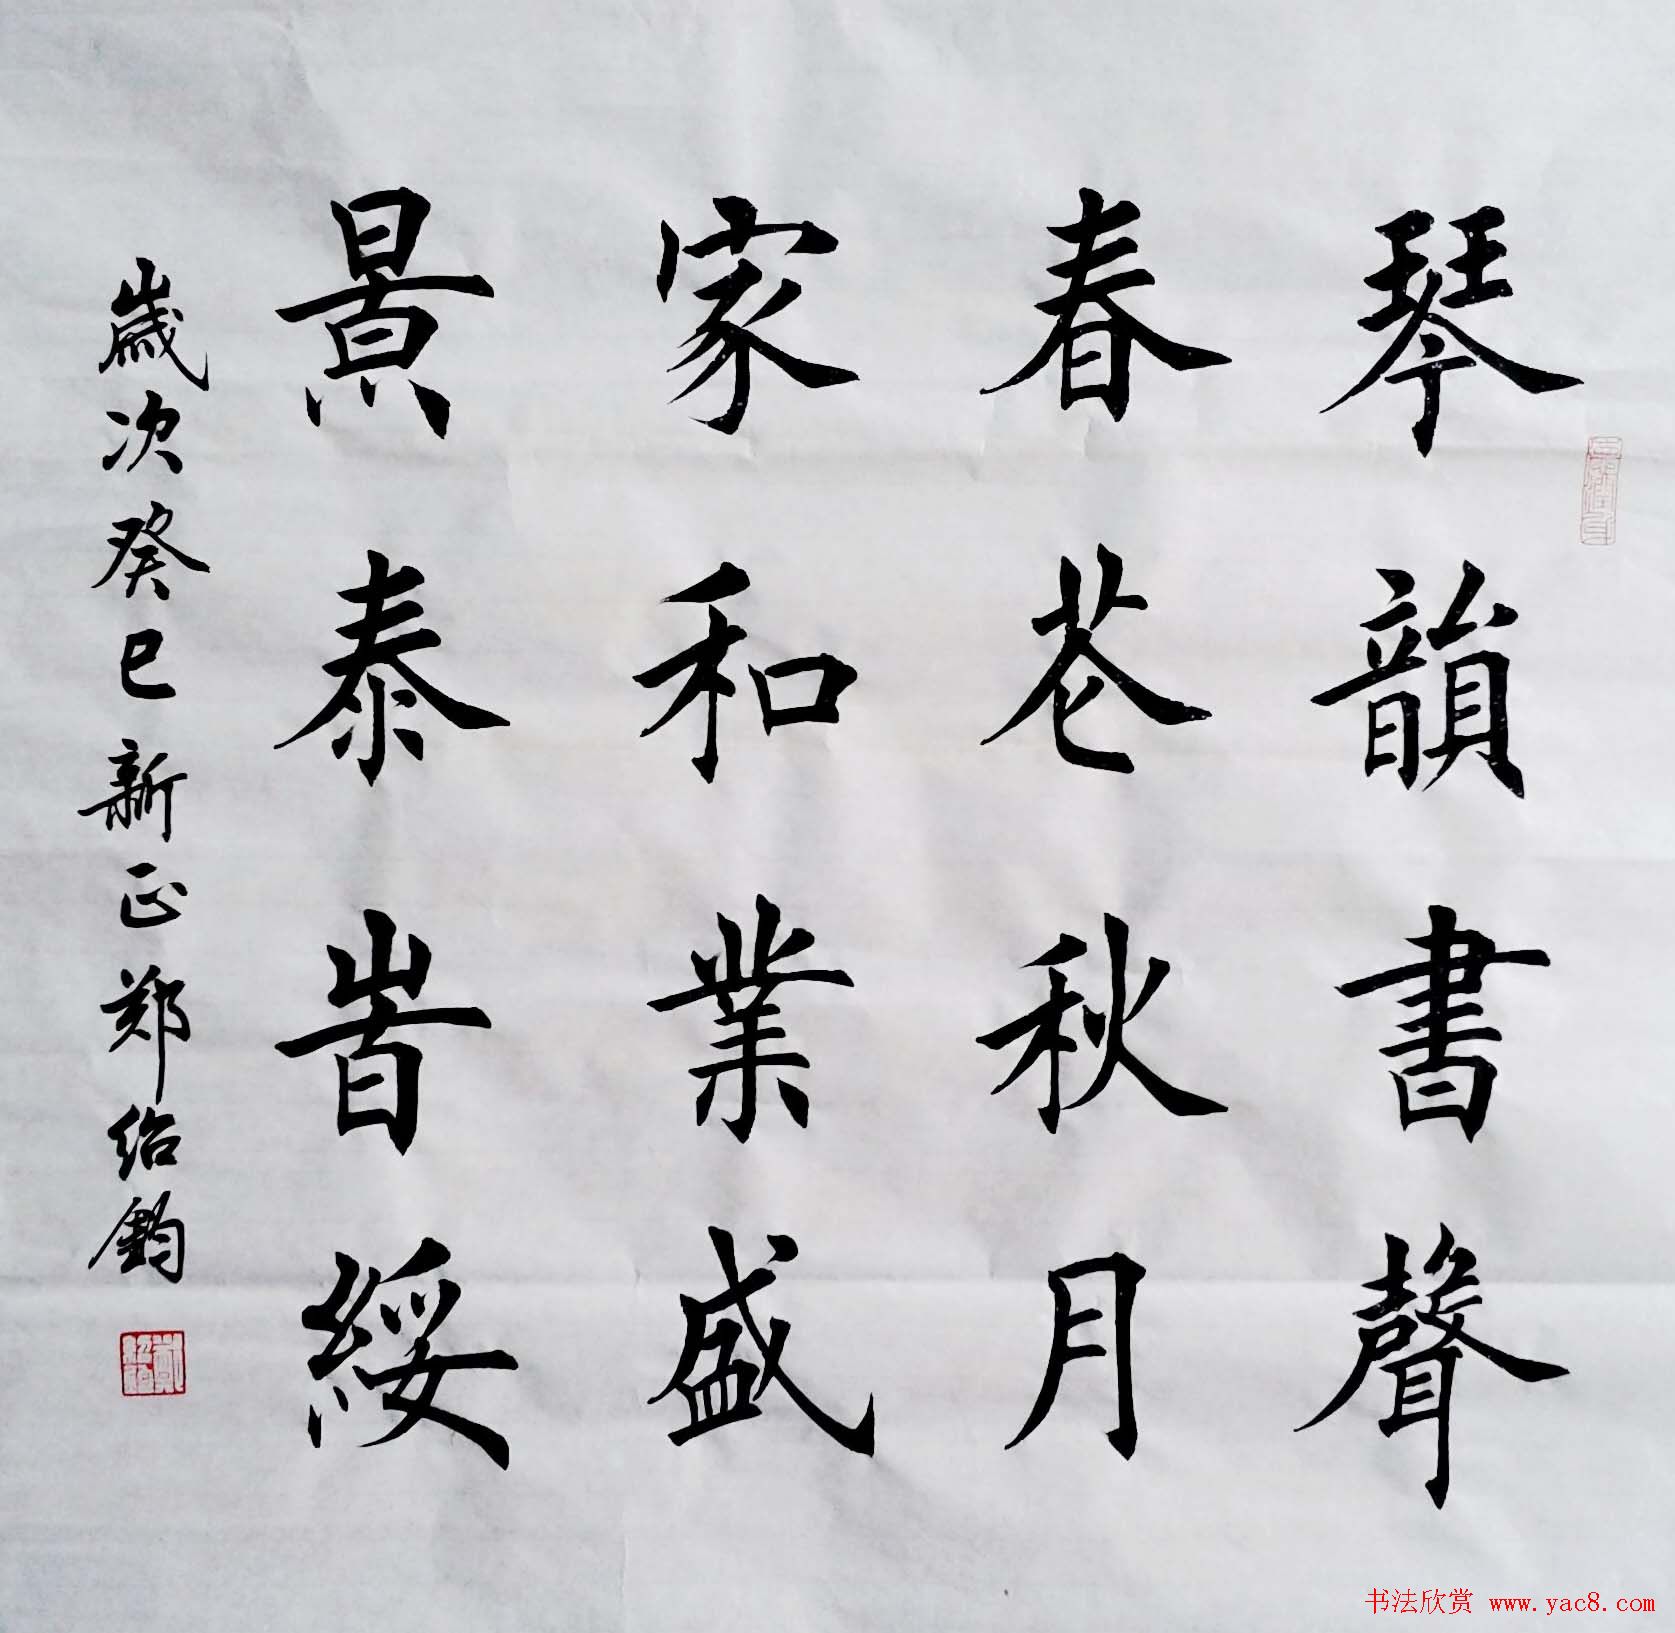 琴韻書聲
春芲秋月
家和業盛
景泰旹綏
歲次癸巳新正郑绍鈞
书法欣赏 www.yac8.com